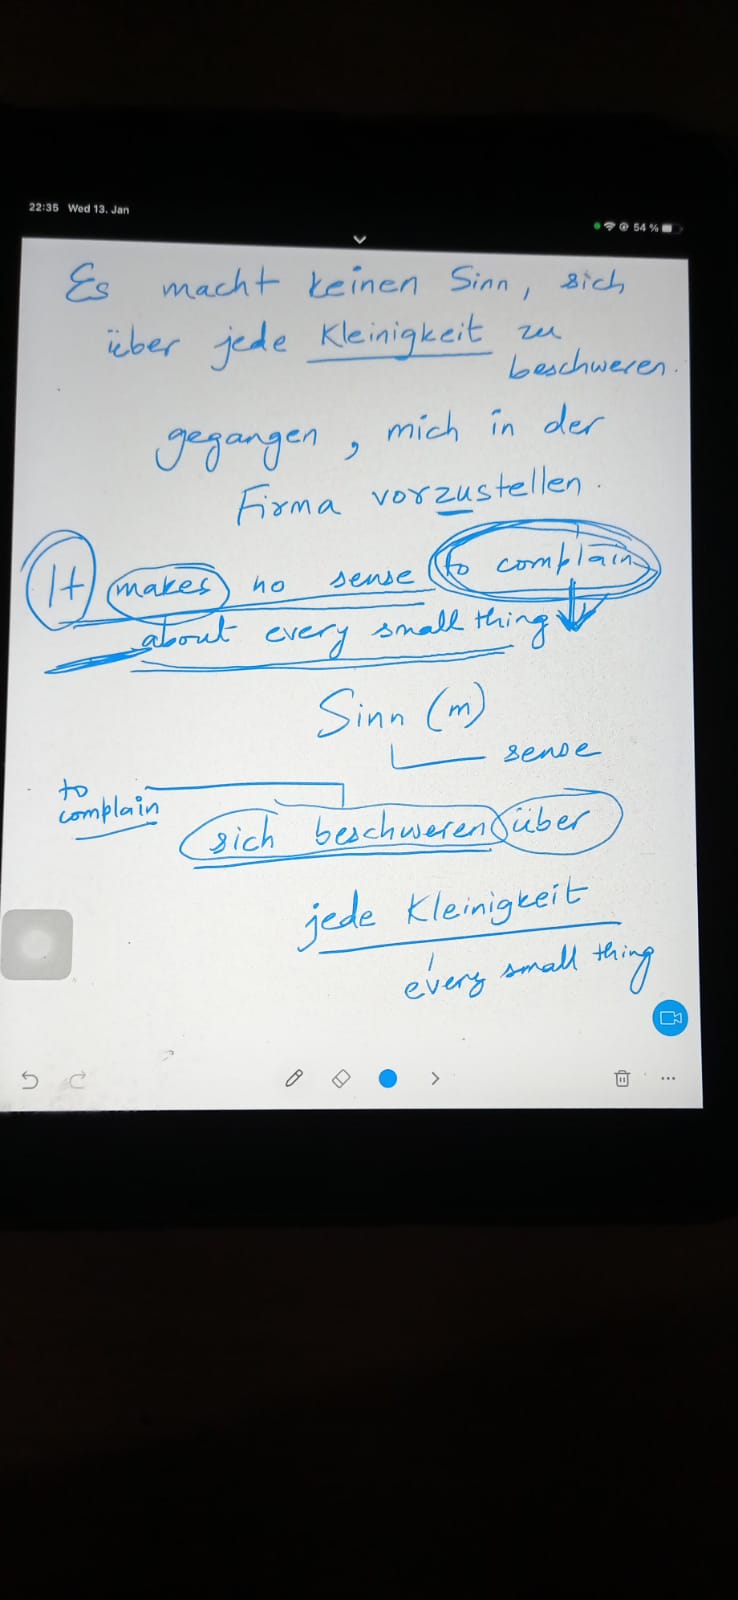 22:35 Wed 13. Jan
54 %
Es macht keinen Sinn, sich
über jede Kleinigkeit zu
beschweren.
gegangen, mich in der
Firma vorzustellen.
It makes no sense to complain
about every small thing
Sinn (m)
sense
to
complain
sich beschweren über
jede Kleinigkeit
every small thing